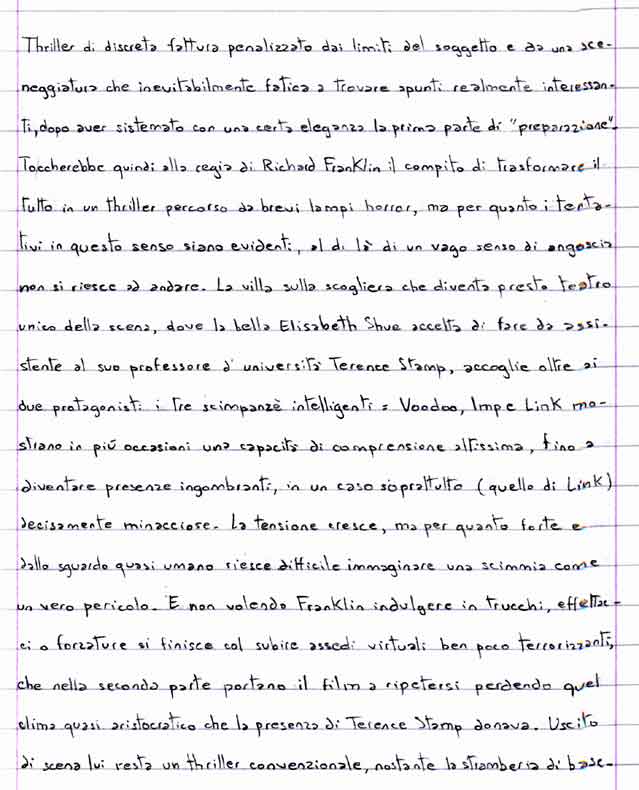 Thriller di discreta fattura penalizzato dai limiti del soggetto e da una sce-
neggiatura che inevitabilmente fatica a trovare spunti realmente interessan-
ti, dopo aver sistemato con una certa eleganza la prima parte di "preparazione".
Toccherebbe quindi alla regia di Richard Franklin il compito di trasformare il
tutto in un thriller percorso da brevi lampi horror, ma per quanto i tenta-
tivi in questo senso siano evidenti, al di là di un vago senso di angoscia
non si riesce ad andare. La villa sulla scogliera che diventa presto teatro
unico della scena, dove la bella Elisabeth Shue accetta di fare da assi-
stente al suo professore d'università Terence Stamp, accoglie oltre ai
due protagonisti i tre scimpanzè intelligenti: Voodoo, Imp e Link mo-
strano in più occasioni una capacità di comprensione altissima, fino a
diventare presenze ingombranti, in un caso soprattutto (quello di Link)
decisamente minacciose. La tensione cresce, ma per quanto forte e
dallo sguardo quasi umano riesce difficile immaginare una scimmia come
un vero pericolo. E non volendo Franklin indulgere in trucchi, effettac-
ci o forzature si finisce col subire assedi virtuali ben poco terrorizzanti,
che nella seconda parte portano il film a ripetersi perdendo quel
clima quasi aristocratico che la presenza di Terence Stamp donava. Uscito
di scena lui resta un thriller convenzionale, nostante la stramberia di base.